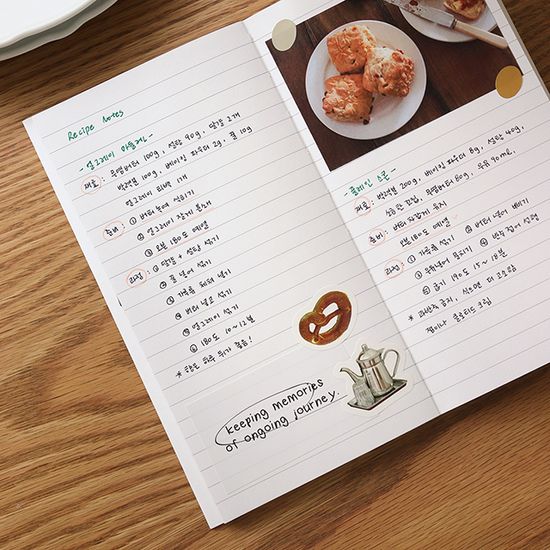 Recipe Notes
- 얼그레이 마들렌 -
재료: 무염버터 100g, 설탕 90g, 달걀 2개
박력분 100g, 베이킹 파우더 2g, 꿀 10g
얼그레이 티백 1개
준비: ① 버터 녹여 식히기
② 얼그레이 잘게 부수기
③ 오븐 180도 예열
과정: ① 달걀 + 설탕 섞기
② 꿀 넣어 섞기
③ 가루류 체쳐 넣기
④ 버터 넣고 섞기
⑤ 얼그레이 섞기
⑥ 180도 10~12분
* 하루 뒤가 좋음!
keeping memories
of ongoing journey.
- 플레인 스콘 -
재료: 박력분 200g, 베이킹 파우더 8g, 설탕 40g,
소금 한 꼬집, 무염버터 60g, 우유 90mL,
준비: 버터 차갑게 유지
오븐 190도 예열
과정: ① 가루류 섞기 ② 버터 넣어 비비기
③ 우유 넣어 뭉치기 ④ 반죽 접어 성형
⑤ 굽기 190도 15~18분
* 과반죽 금지, 식으면 더 고소함
잼이나 클로티드 크림